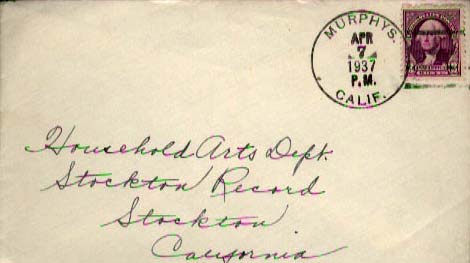 MURPHYS.
APR
7
1937
P.M.
CALIF.
Household Arts Dept.
Stockton Record
Stockton
California